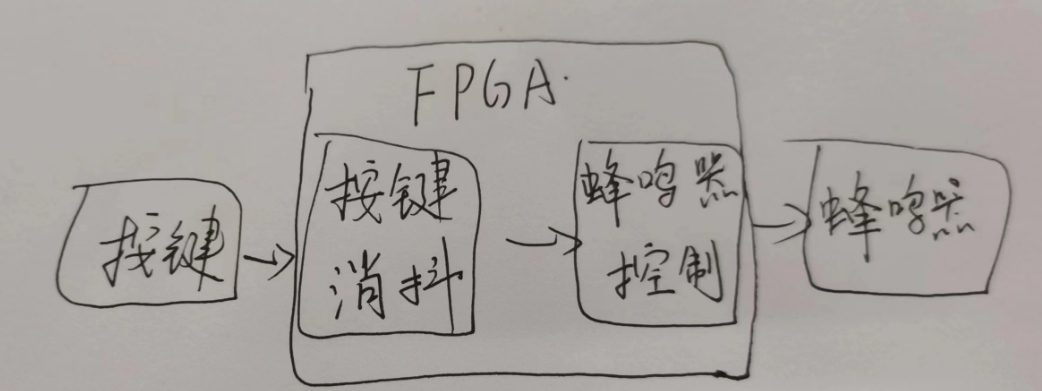 FPGA
按键
按键
消抖
蜂鸣器
控制
蜂鸣器